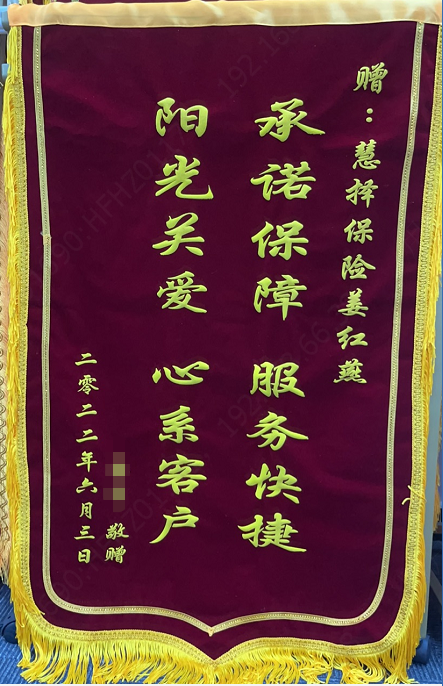 赠：慧择保险姜红燕
承诺保障 服务快捷
阳光关爱 心系客户
敬赠
二零二二年六月三日